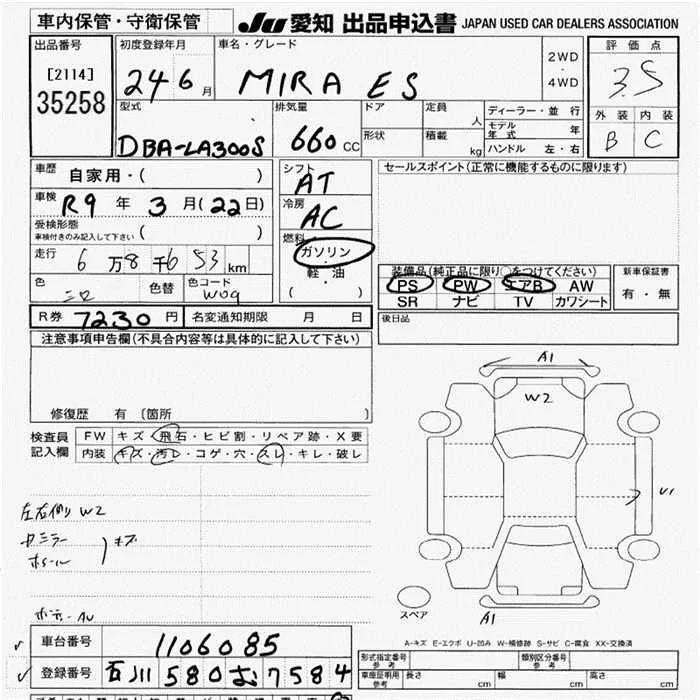 車内保管・守衛保管
JU 愛知 出品申込書 JAPAN USED CAR DEALERS ASSOCIATION
出品番号
[2114]
35258
初度登録年月
24 6 月
車名・グレード
MIRA ES
2WD
・
4WD
評価点
3.5
外装 内装
B C
型式
DBA-LA300S
排気量
660 CC
ドア
形状
定員
人
積載
kg
ディーラー・並 行
モデル年式 年
ハンドル 左・右
車歴 自家用・( )
車検 R9 年 3 月(22日)
受検形態
車検付きのみ記入して下さい ( )
走行 6 万 8 千 6 53 km
色 色替 色コード
W09
R券 7230 円 名変通知期限 月 日
シフト
AT
冷房
AC
燃料
ガソリン
・
軽・油
( )
セールスポイント(正常に機能するものに限ります)
装備品(純正品に限り○をつけてください)
PS PW エアB AW
SR ナビ TV カワシート
新車保証書
有・無
後日品
注意事項申告欄(不具合内容等は具体的に記入して下さい)
修復歴 有 〔箇所 〕
検査員 記入欄
FW キズ・飛石・ヒビ割・リペア跡・X要
内装 キズ・汚レ・コゲ・穴・スレ・キレ・破レ
左右側り W2
ミラー
キズ
A1
W2
A1
スペア
A-キズ E-エクボ U-凹み W-補修跡 S-サビ C-腐食 XX-交換済
車台番号 1106085
登録番号 石川 580 お 7584
形式指定番号 参考
類別区分番号 参考
車庫証明用 参考 長さ cm 幅 cm 高さ cm